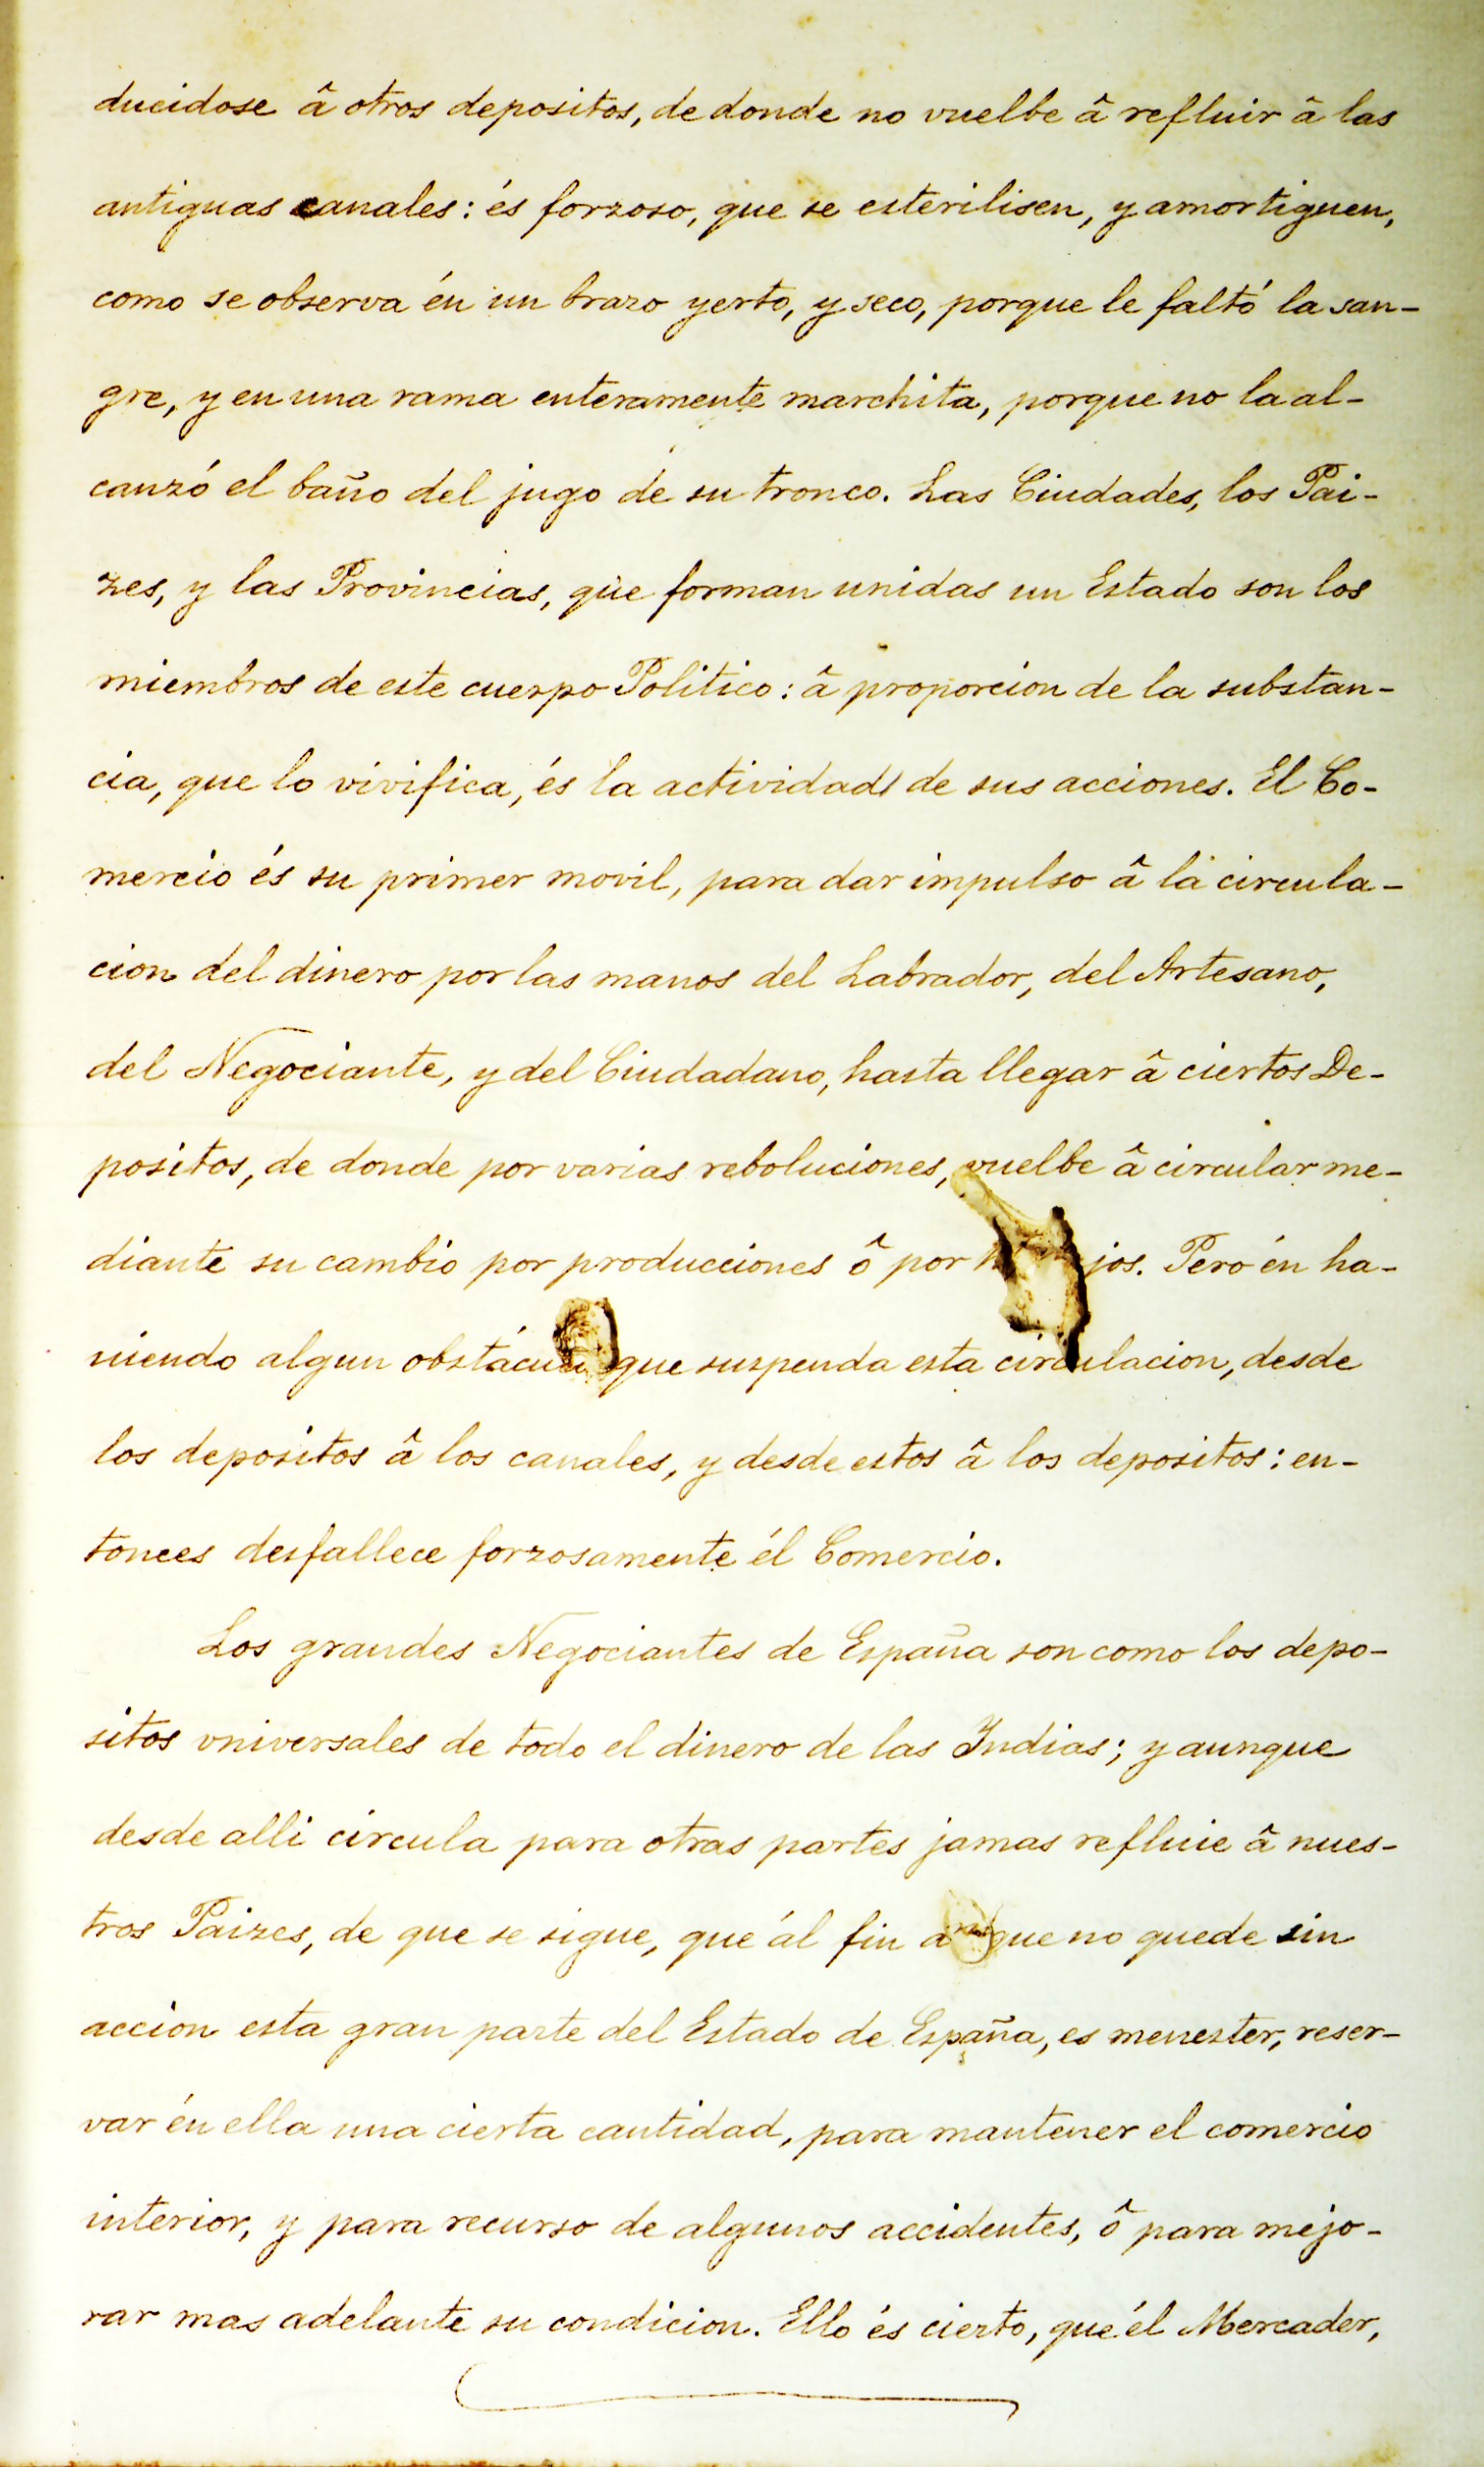 ducidose â otros depositos, de donde no vuelbe â refluir â las
antiguas canales: és forzoso, que se esterilisen, y amortiguen,
como se observa én un brazo yerto, y seco, porque le faltó la san-
gre, y en una rama enteramente marchita, porque no la al-
canzó el baño del jugo de su tronco. Las Ciudades, los Pai-
zes, y las Provincias, que forman unidas un Estado son los
miembros de este cuerpo Politico: â proporcion de la substan-
cia, que lo vivifica, és la actividad de sus acciones. El Co-
mercio és su primer movil, para dar impulso â la circula-
cion del dinero por las manos del Labrador, del Artesano,
del Negociante, y del Ciudadano, hasta llegar â ciertos De-
positos, de donde por varias reboluciones, vuelbe â circular me-
diante su cambio por producciones ô por jos. Pero én ha-
niendo algun obstáculo que suspenda esta circulacion, desde
los depositos â los canales, y desde estos â los depositos: en-
tonces desfallece forzosamente él Comercio.
Los grandes Negociantes de España son como los depo-
sitos vniversales de todo el dinero de las Yndias; y aunque
desde alli circula para otras partes jamas refluie â nues-
tros Paizes, de que se sigue, que ál fin que no quede sin
accion esta gran parte del Estado de España, es menester, reser-
var én ella una cierta cantidad, para mantener el comercio
interior, y para recurso de algunos accidentes, ô para mejo-
rar mas adelante su condicion. Ello és cierto, que él Mercader,